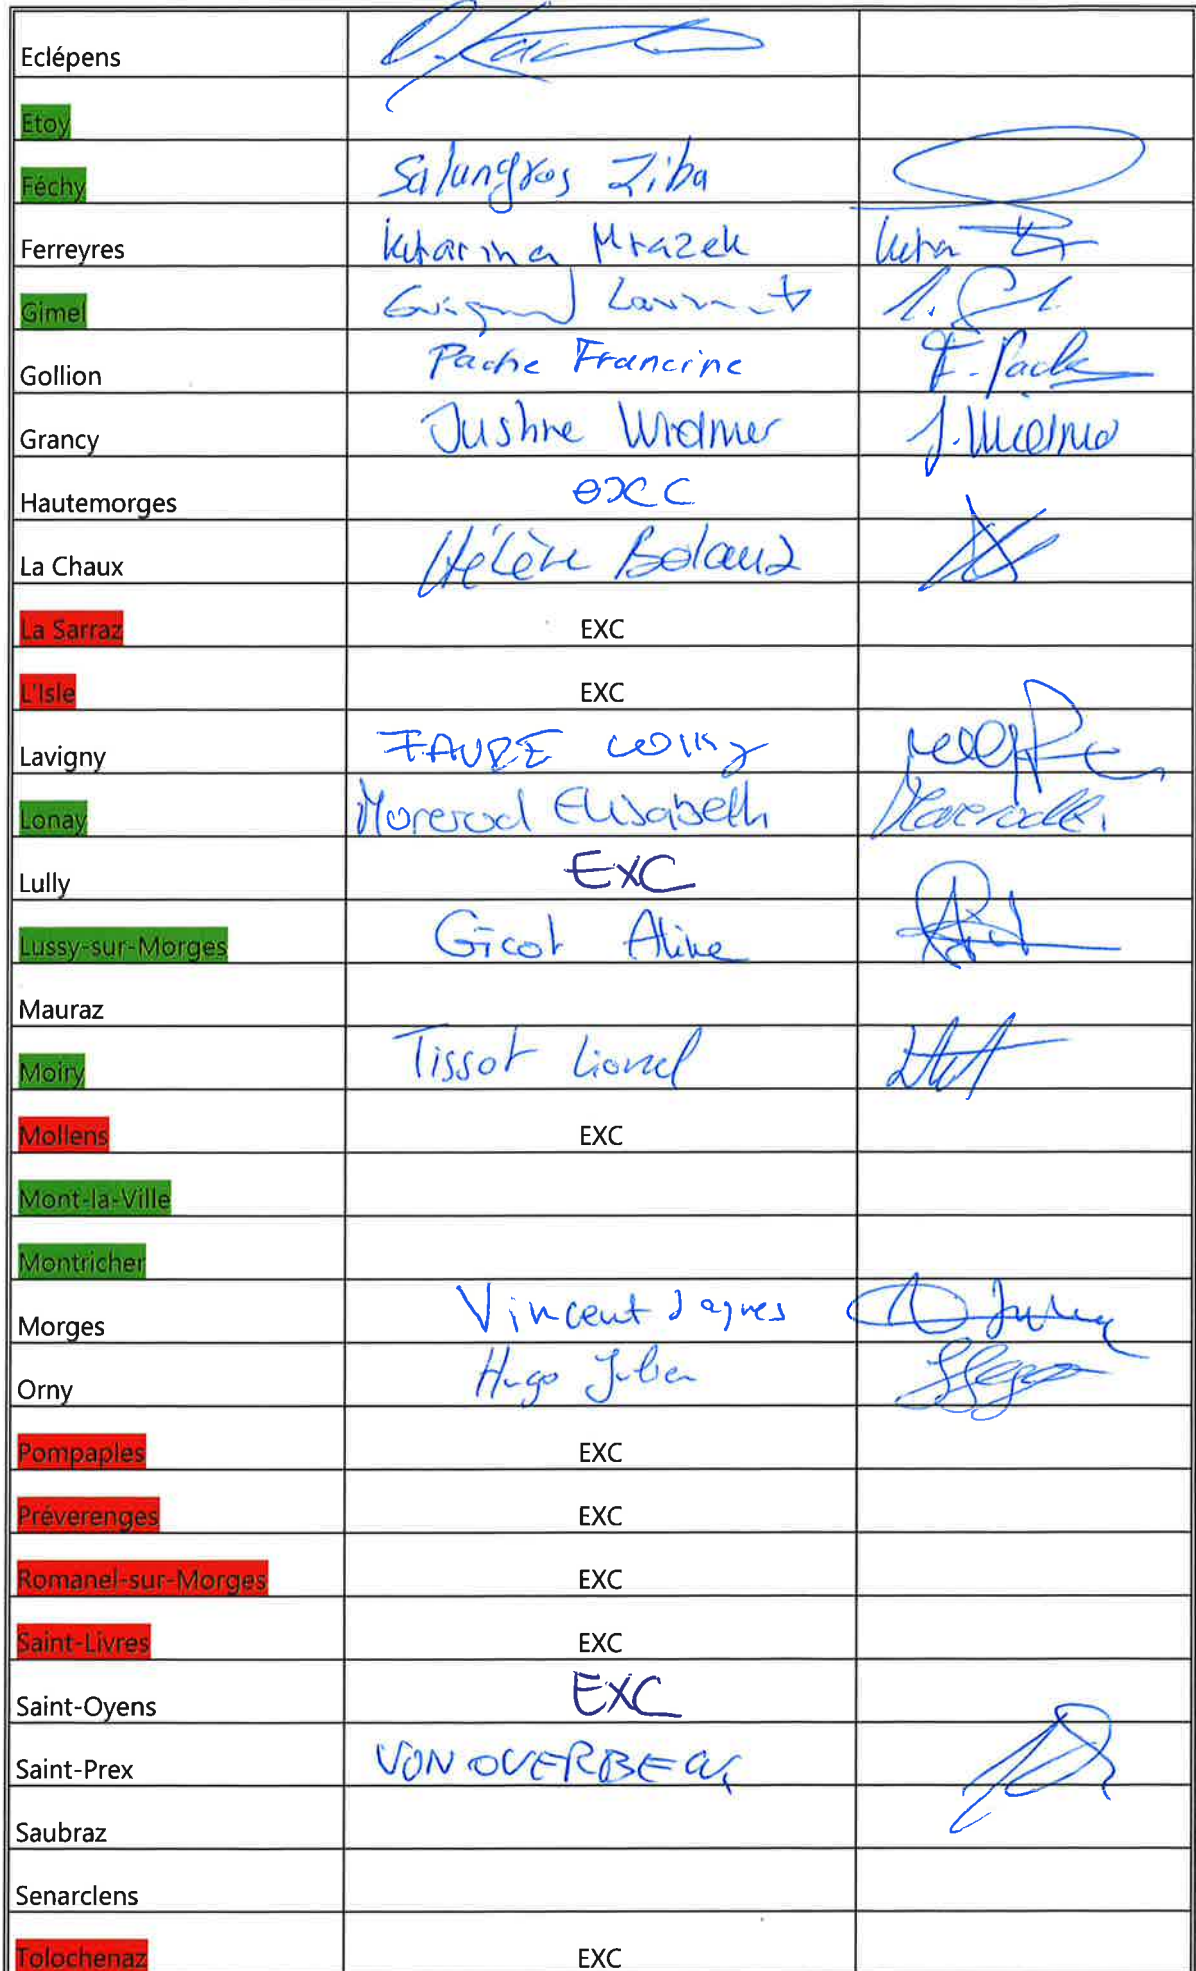 Eclépens
Etoy
Féchy Salangros Ziba
Ferreyres Katarina Mrazek
Gimel
Gollion Pache Francine F. Pache
Grancy Justine Widmer J. Widmer
Hautemorges exc
La Chaux Hélène Bolanz
La Sarraz EXC
L'Isle EXC
Lavigny FAURE
Lonay Morerod Elisabeth
Lully EXC
Lussy-sur-Morges Gicot Aline
Mauraz
Moiry Tissot Lionel
Mollens EXC
Mont-la-Ville
Montricher
Morges Vincent Jaques
Orny Hugo Julien
Pompaples EXC
Préverenges EXC
Romanel-sur-Morges EXC
Saint-Livres EXC
Saint-Oyens EXC
Saint-Prex VON OVERBECK
Saubraz
Senarclens
Tolochenaz EXC